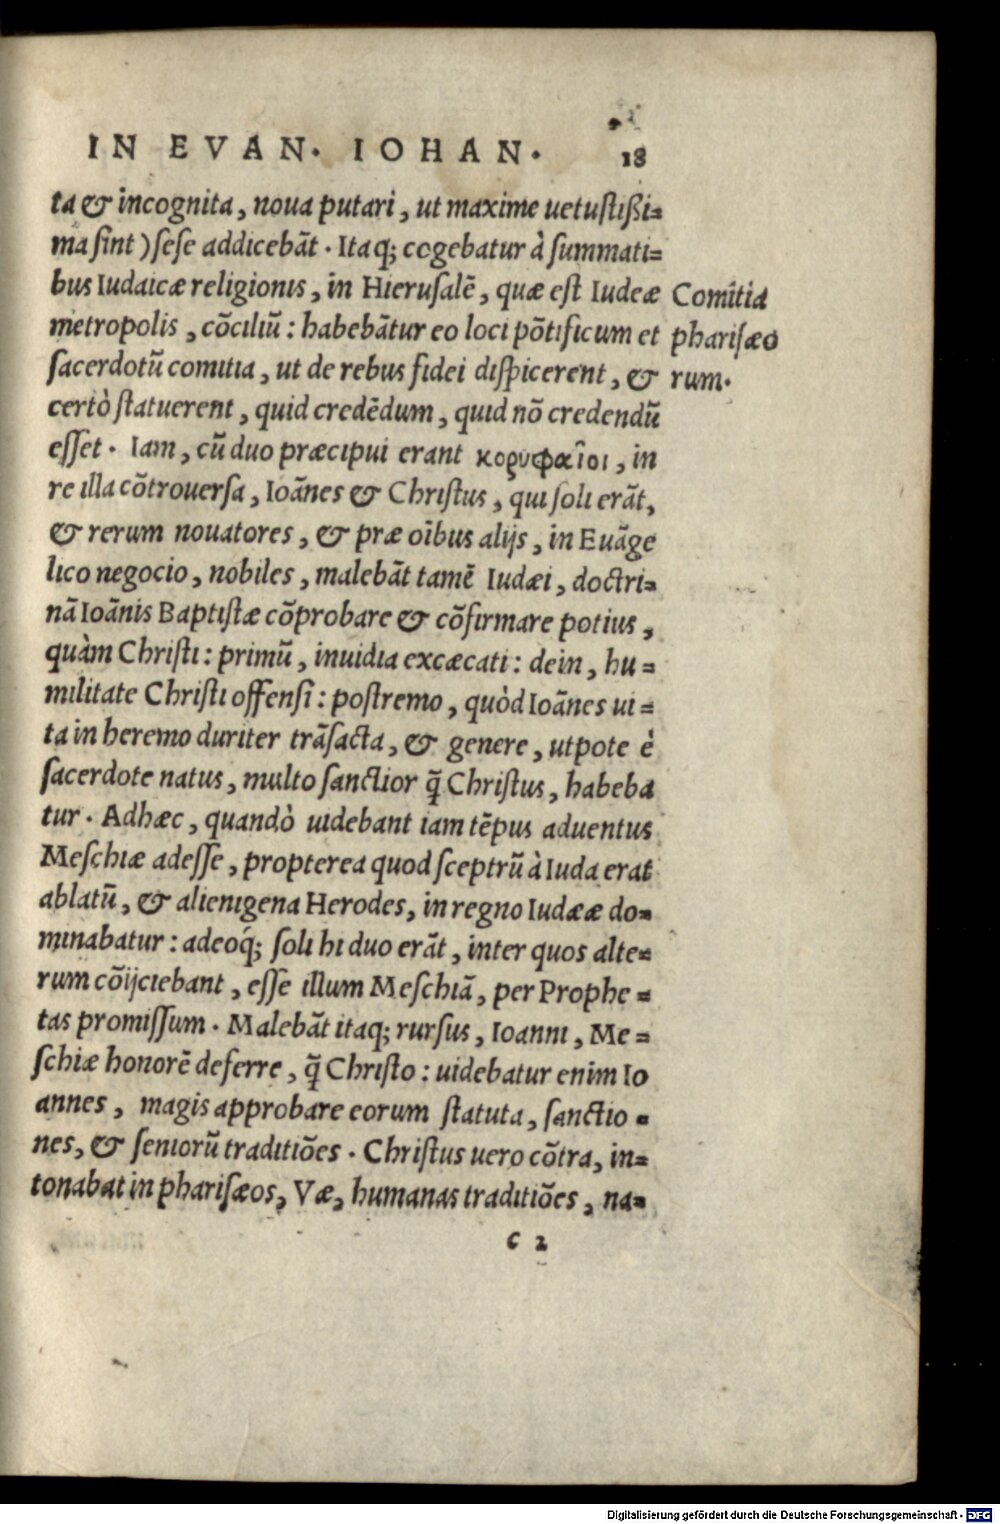 IN EVAN. IOHAN. 18
ta & incognita, noua putari, ut maxime uetustißi=
ma sint) sese addicebāt. Itaq; cogebatur à summati=
bus Iudaicæ religionis, in Hierusalē, quæ est Iudeæ
metropolis, cōciliū: habebātur eo loci pōtificum et
sacerdotū comitia, ut de rebus fidei dispicerent, &
certò statuerent, quid credēdum, quid nō credendū
esset. Iam, cū duo præcipui erant κορυφαῖοι, in
re illa cōtrouersa, Ioānes & Christus, qui soli erāt,
& rerum nouatores, & præ oībus alijs, in Euāge
lico negocio, nobiles, malebāt tamē Iudæi, doctri=
nā Ioānis Baptistæ cōprobare & cōfirmare potius,
quàm Christi: primū, inuidia excæcati: dein, hu=
militate Christi offensi: postremo, quòd Ioānes ui=
ta in heremo duriter trāsacta, & genere, utpote è
sacerdote natus, multo sanctior q̄ Christus, habeba
tur. Adhæc, quandò uidebant iam tēpus aduentus
Meschiæ adesse, propterea quod sceptrū à Iuda erat
ablatū, & alienigena Herodes, in regno Iudææ do=
minabatur: adeoq́; soli hi duo erāt, inter quos alte=
rum cōijciebant, esse illum Meschiā, per Prophe=
tas promissum. Malebāt itaq; rursus, Ioanni, Me=
schiæ honorē deferre, q̄ Christo: uidebatur enim Io
annes, magis approbare eorum statuta, sanctio=
nes, & seniorū traditiōes. Christus uero cōtra, in=
tonabat in pharisæos, Væ, humanas traditiōes, na=
c 2
Comitia
pharisæo
rum.
Digitalisierung gefördert durch die Deutsche Forschungsgemeinschaft - DFG